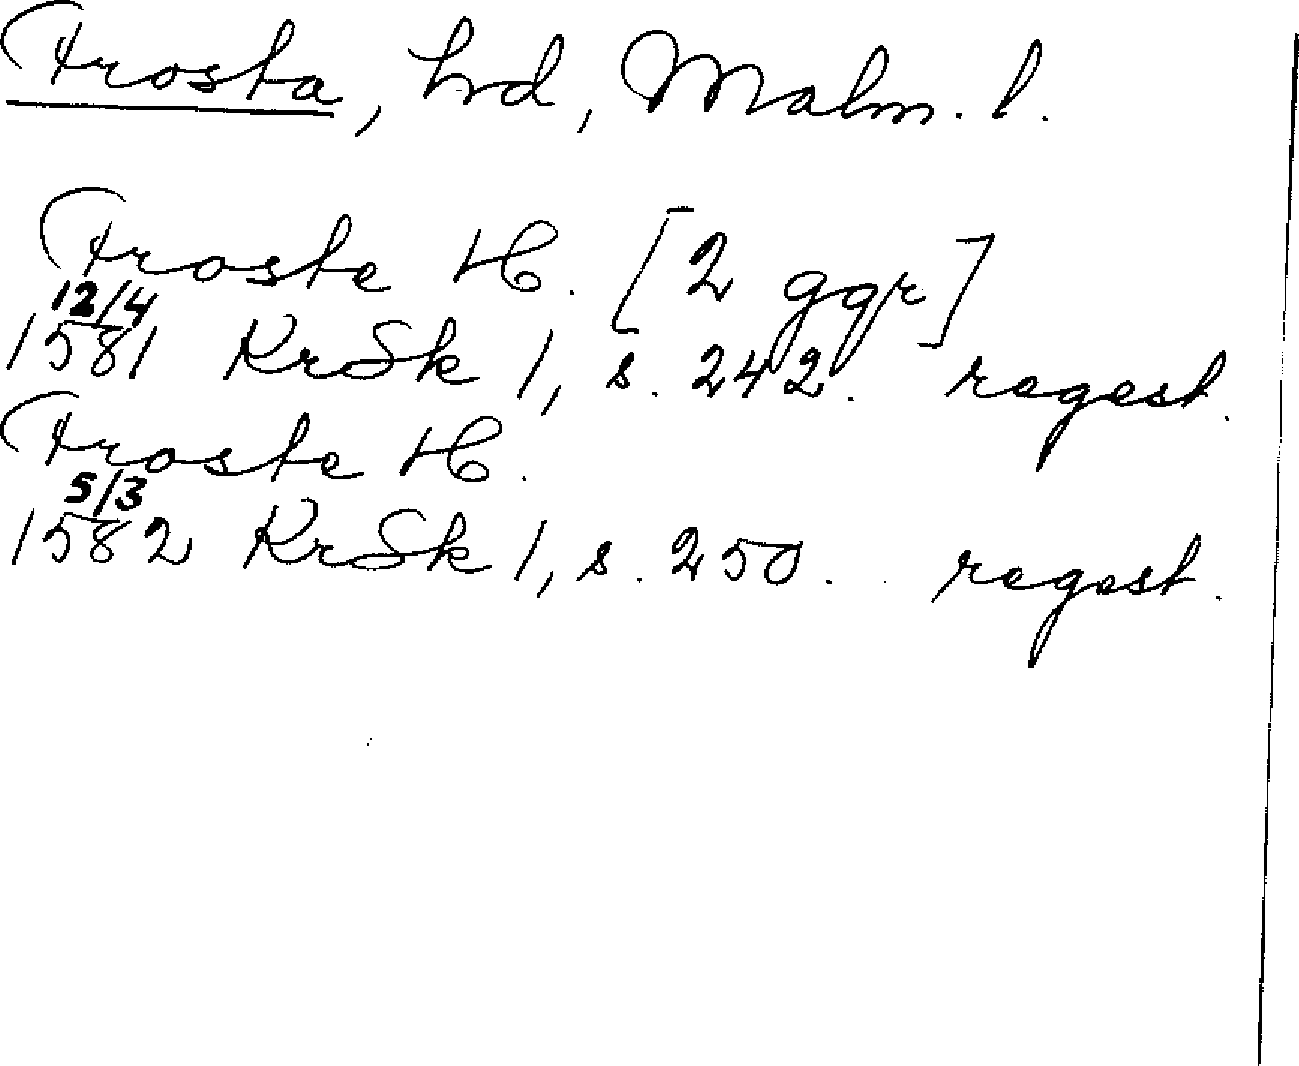 Frosta, hd, Malm. l.
Froste H. [2 ggr]
12/4
1581 KrSk 1, s. 242. regest.
Froste H.
5/3
1582 KrSk 1, s. 250. regest.